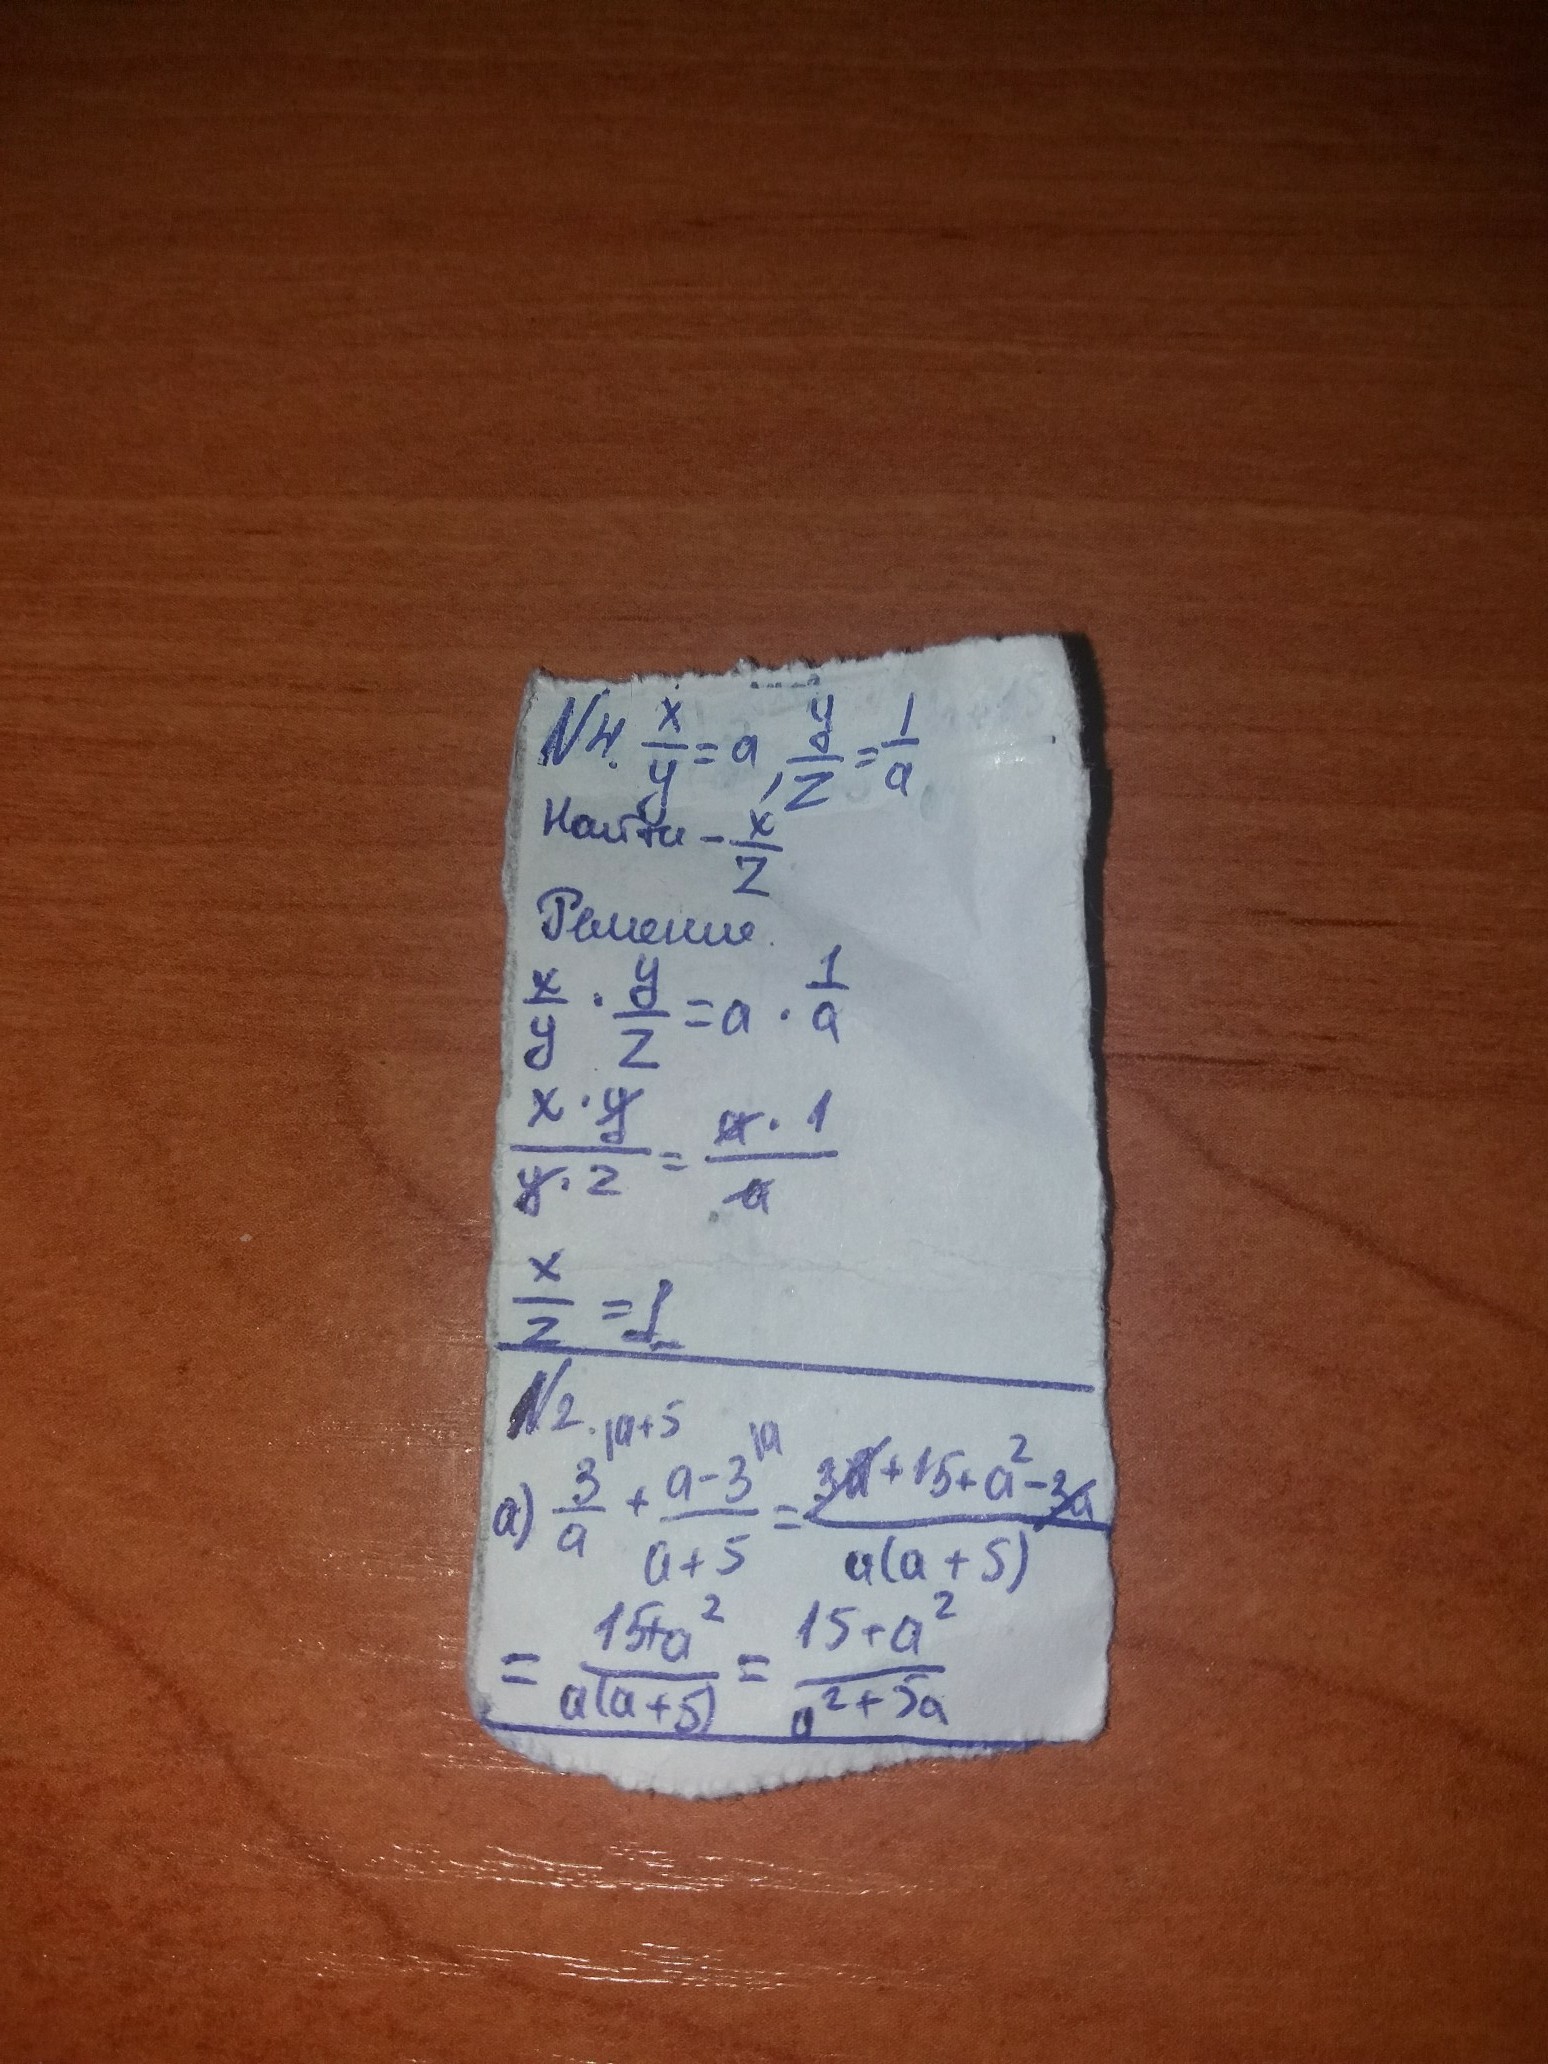 N4. x/y = a, y/z = 1/a
Найти - x/z
Решение.
x/y · y/z = a · 1/a
x · y / y · z = a · 1 / a
x/z = 1
N2.
а) 3/a |a+5 + a-3/a+5 |a = 3a+15+a²-3a / a(a+5)
= 15+a² / a(a+5) = 15+a² / a²+5a